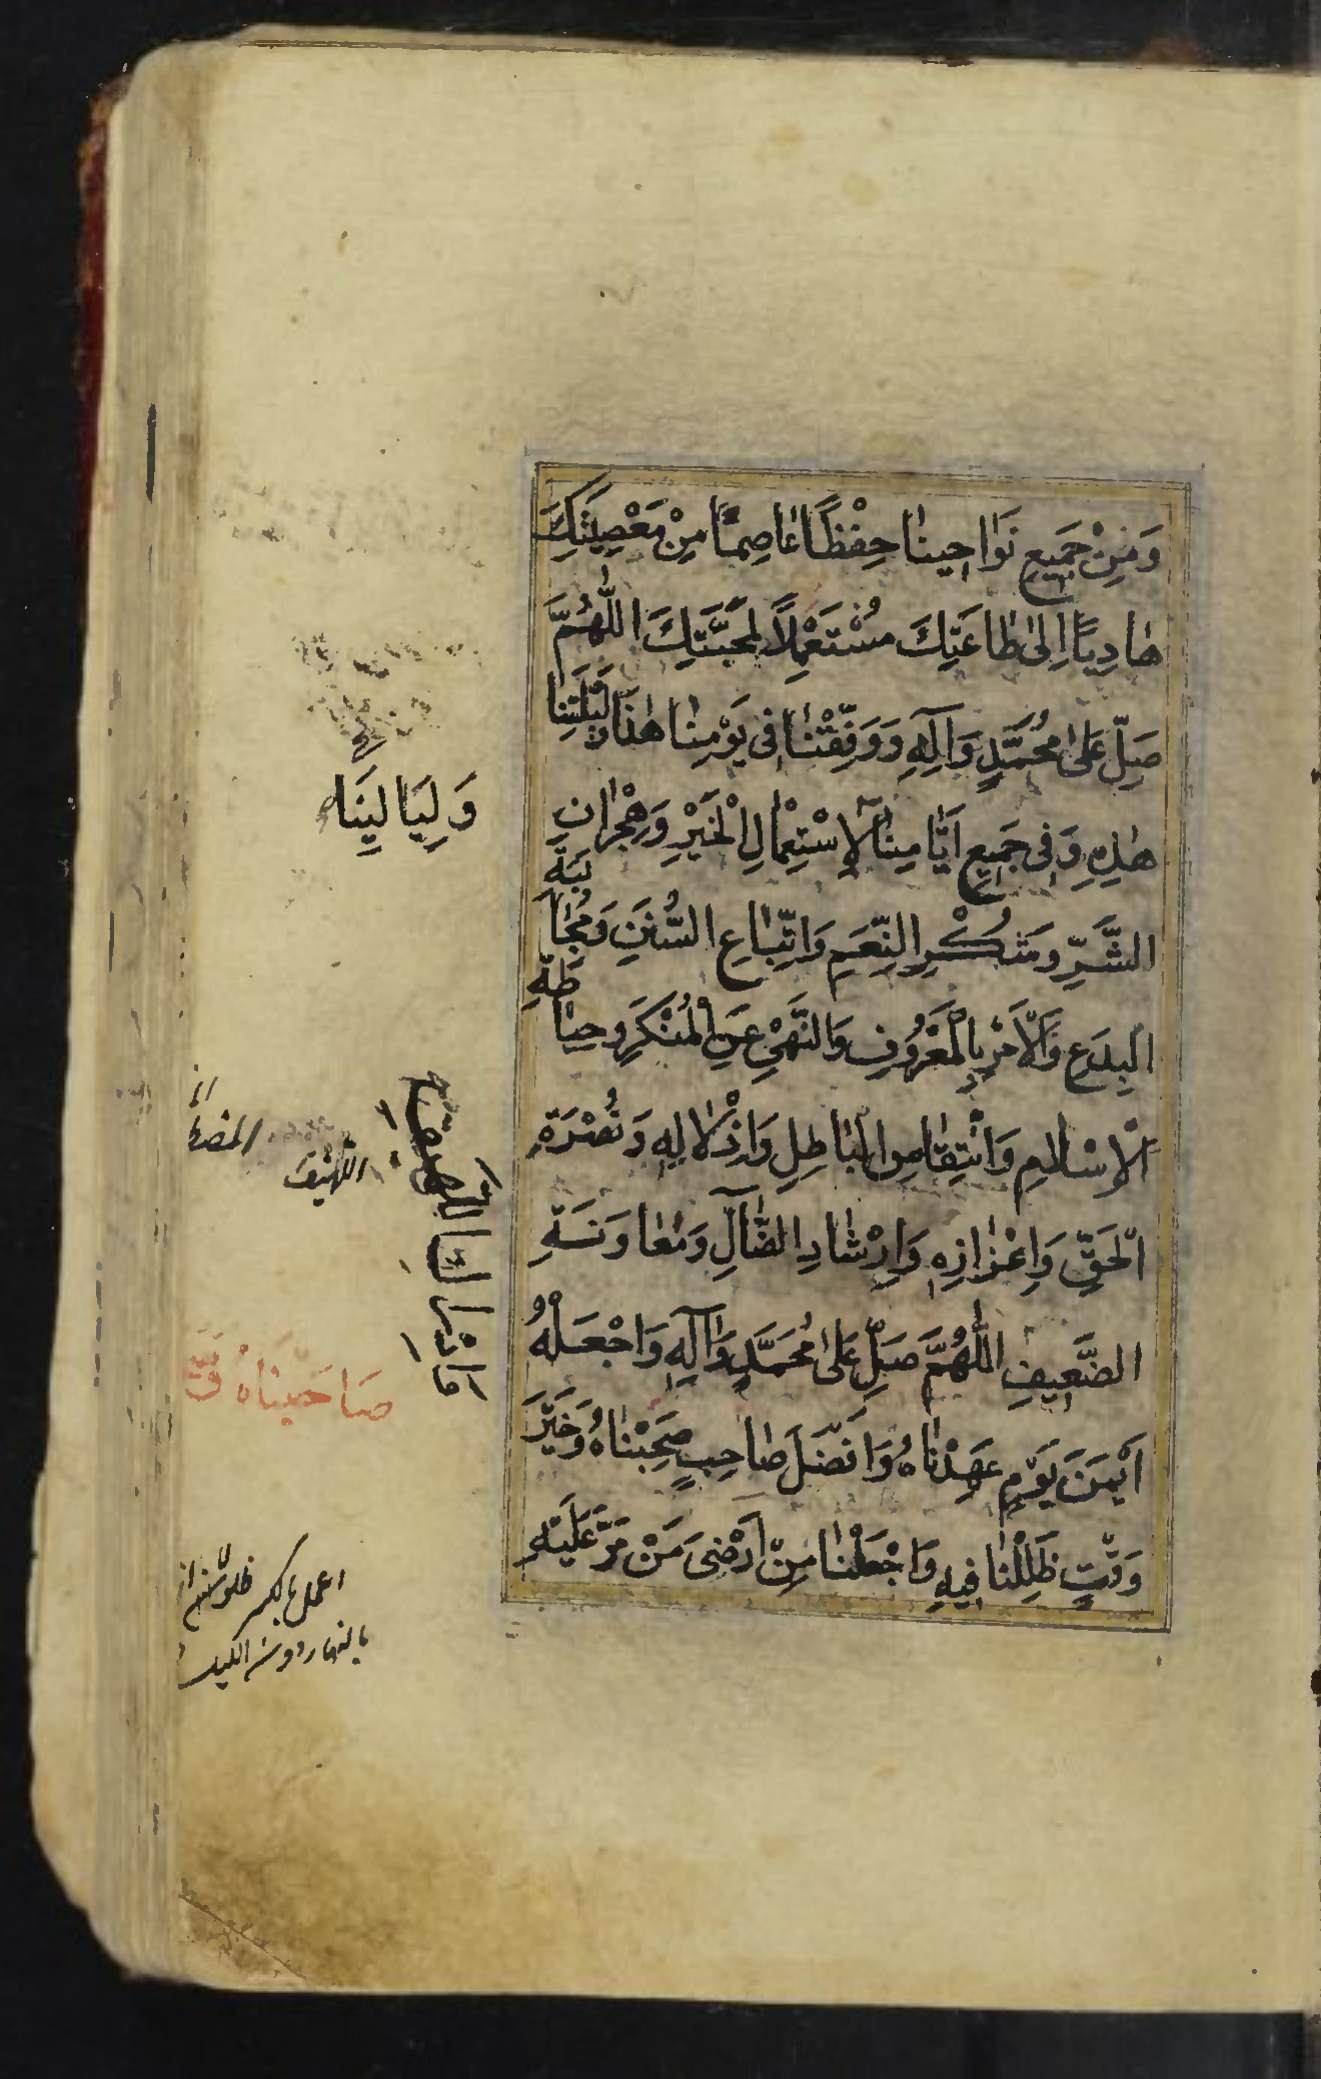 وَمِنْ جَمِيعِ نَوَاحِينَا حِفْظًا عَاصِمًا مِنْ مَعْصِيَتِكَ
هَادِيًا اِلىٰ طَاعَتِكَ مُسْتَعْمِلًا لِمَحَبَّتِكَ اَللّٰهُمَّ
صَلِّ عَلىٰ مُحَمَّدٍ وَآلِهِ وَوَفِّقْنَا فِى يَوْمِنَا هٰذَا وَلَيْلَتِنَا
هٰذِهِ وَفِى جَمِيعِ اَيَّامِنَا لِاسْتِعْمَالِ الْخَيْرِ وَهِجْرَانِ
الشَّرِّ وَشُكْرِ النِّعَمِ وَاتِّبَاعِ السُّنَنِ وَمُجَانَبَةِ
الْبِدَعِ وَالْاَمْرِ بِالْمَعْرُوفِ وَالنَّهْيِ عَنِ الْمُنْكَرِ وَحِيَاطَةِ
الْاِسْلَامِ وَانْتِقَاصِ الْبَاطِلِ وَاِذْلَالِهِ وَنُصْرَةِ
الْحَقِّ وَاِعْزَازِهِ وَاِرْشَادِ الضَّآلِّ وَمُعَاوَنَةِ
الضَّعِيفِ اَللّٰهُمَّ صَلِّ عَلىٰ مُحَمَّدٍ وَآلِهِ وَاجْعَلْهُ
اَيْمَنَ يَوْمٍ عَهِدْنَاهُ وَاَفْضَلَ صَاحِبٍ صَحِبْنَاهُ وَخَيْرَ
وَقْتٍ ظَلِلْنَا فِيهِ وَاجْعَلْنَا مِنْ اَرْضىٰ مَنْ مَرَّ عَلَيْهِ
وَلِيَالِينَا
اللَّهِيفَ